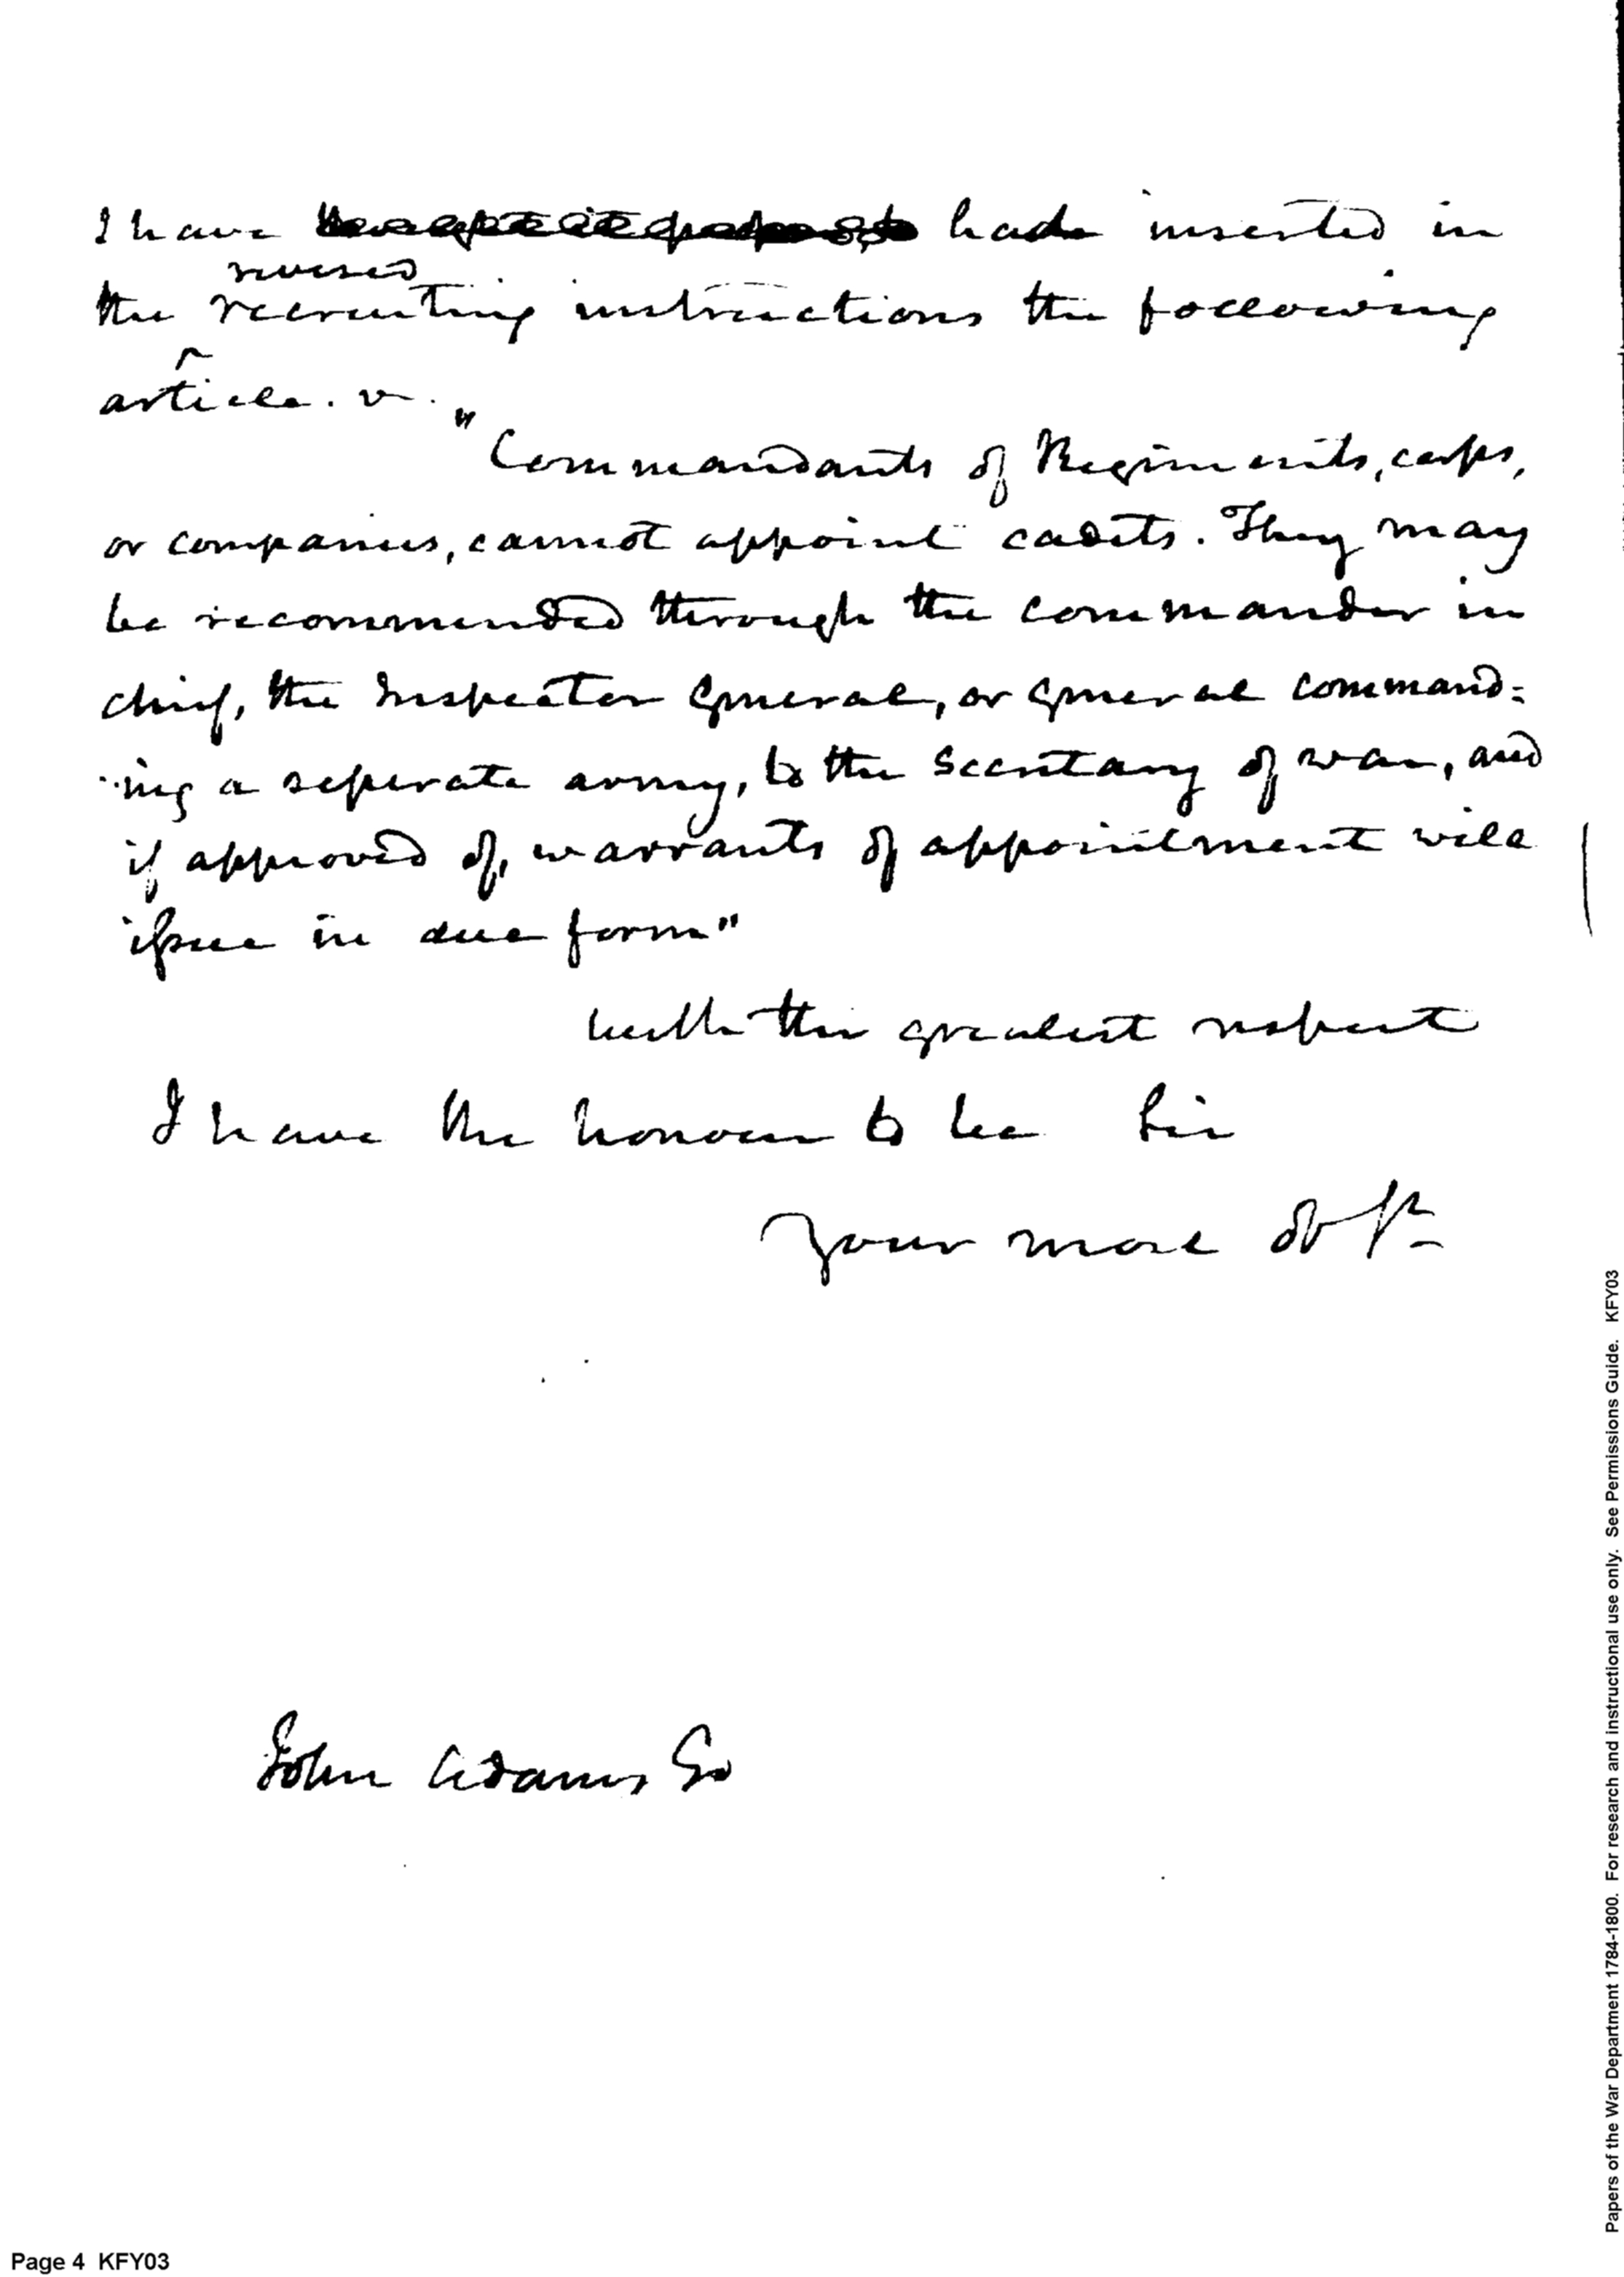 I have had inserted in
revised
the recruiting instructions the following
article. v.
"Commandants of Regiments, corps,
or companies, cannot appoint cadets. They may
be recommended through the commander in
chief, the Inspector General, or general command=
ing a seperate army, to the Secretary of war, and
if approved of, warrants of appointment will
issue in due form"
with the greatest respect
I have the honour to be Sir
Your most
John Adams
Papers of the War Department 1784-1800. For research and instructional use only. See Permissions Guide. KFY03
Page 4 KFY03